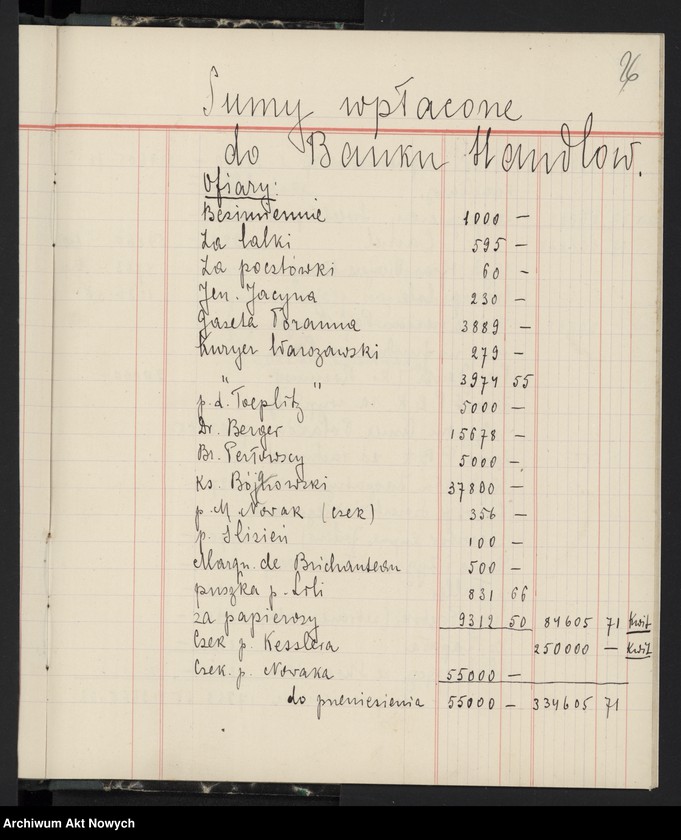 26
Sumy wpłacone
do Banku Handlow.
Ofiary:
Bezimiennie 1000 —
Za lalki 595 —
Za pocztówki 60 —
Jen. Jacyna 230 —
Gazeta Poranna 3889 —
Kuryer Warszawski 279 —
" " 3974 55
p. d. Toeplitz 5000 —
Dr. Berger 15678 —
Br. Perłowscy 5000 —
Ks. Bójtkowski 37800 —
p. M. Nowak (czek) 356 —
p. Slizień 100 —
Marqu. de Brichanteau 500 —
puszka p. Loli 831 66
za papierosy 9312 50 84605 71 Kwit
Czek p. Kesslera 250000 — Kwit
Czek. p. Nowaka 55000 —
do przeniesienia 55000 — 334605 71
Archiwum Akt Nowych